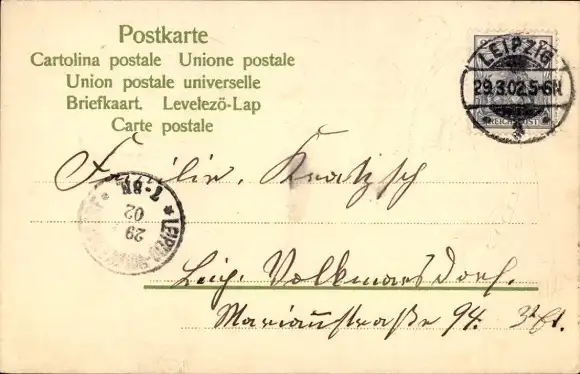 Postkarte
Cartolina postale Unione postale
Union postale universelle
Briefkaart. Levelező-Lap
Carte postale
LEIPZIG
29.3.02.5-6N
REICHSPOST
Familie Kratzsch
7-8N
29
02
LEIPZIG-VOLKMARSDORF
Leipz. Volkmarsdorf.
Mariannstraße 94. 3t Et.